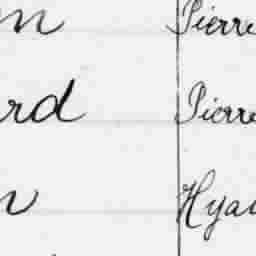 m Pierre
rd Pierre
n Hya